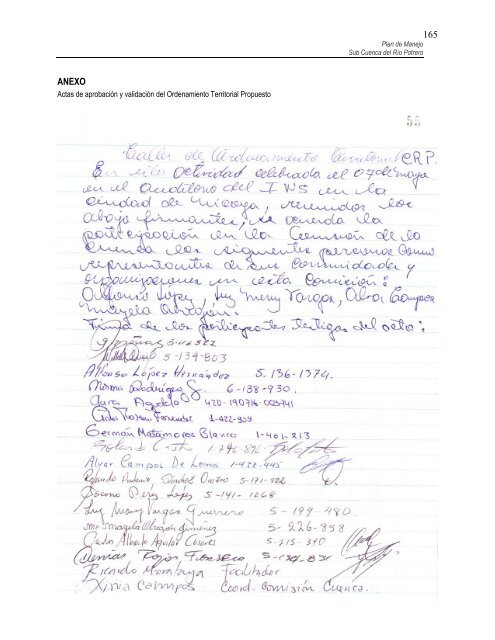 165
Plan de Manejo
Sub Cuenca del Río Potrero
ANEXO
Actas de aprobación y validación del Ordenamiento Territorial Propuesto
55
Taller de Ordenamiento Territorial CRP.
En esta actividad celebrada el 07 de mayo
en el auditorio del INS en la
ciudad de Nicoya, reunidos los
abajo firmantes, se acuerda la
participación en la Comisión de la
Cuenca las siguientes personas como
representantes de sus comunidades y
organizaciones en esta Comisión:
Alfonso López, Luz Mery Vargas, Alvar Campos
Mayela Obregón.
Firma de los participantes testigos del acto:
5-116522
5-139-803
Alfonso López Hernández 5.136-1374.
Norma Rodríguez S. 6-138-930.
Clara Agudelo 420-190716-003741
Carlos Moreno Fernandez 1-422-909
Germán Matamoros Blanco 1-461-213
Rolando Castro 1 746-826
Alvar Campos De Lema 1-432-445
Rolando Antonio Sanchez Orozco 5-171-922
Socorro Perez López 5-141-1268
Luz Mery Vargas Guerrero 5-199-480
Mayela Obregón Jiménez 5-226-358
Carlos Alberto Aguilar 5-215-370
Rojas Fonseca 5-174-831
Ricardo Facilitador
Xinia Campos Coord. Comisión Cuenca.